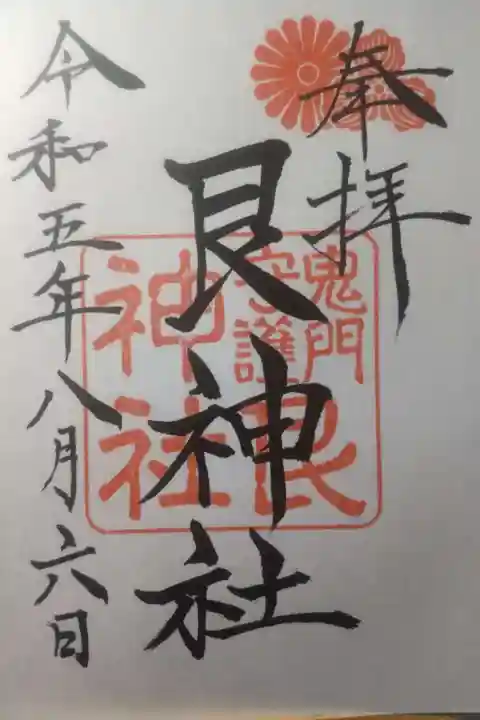 奉拝
鬼門
守護
艮
神社
艮神社
令和五年八月六日